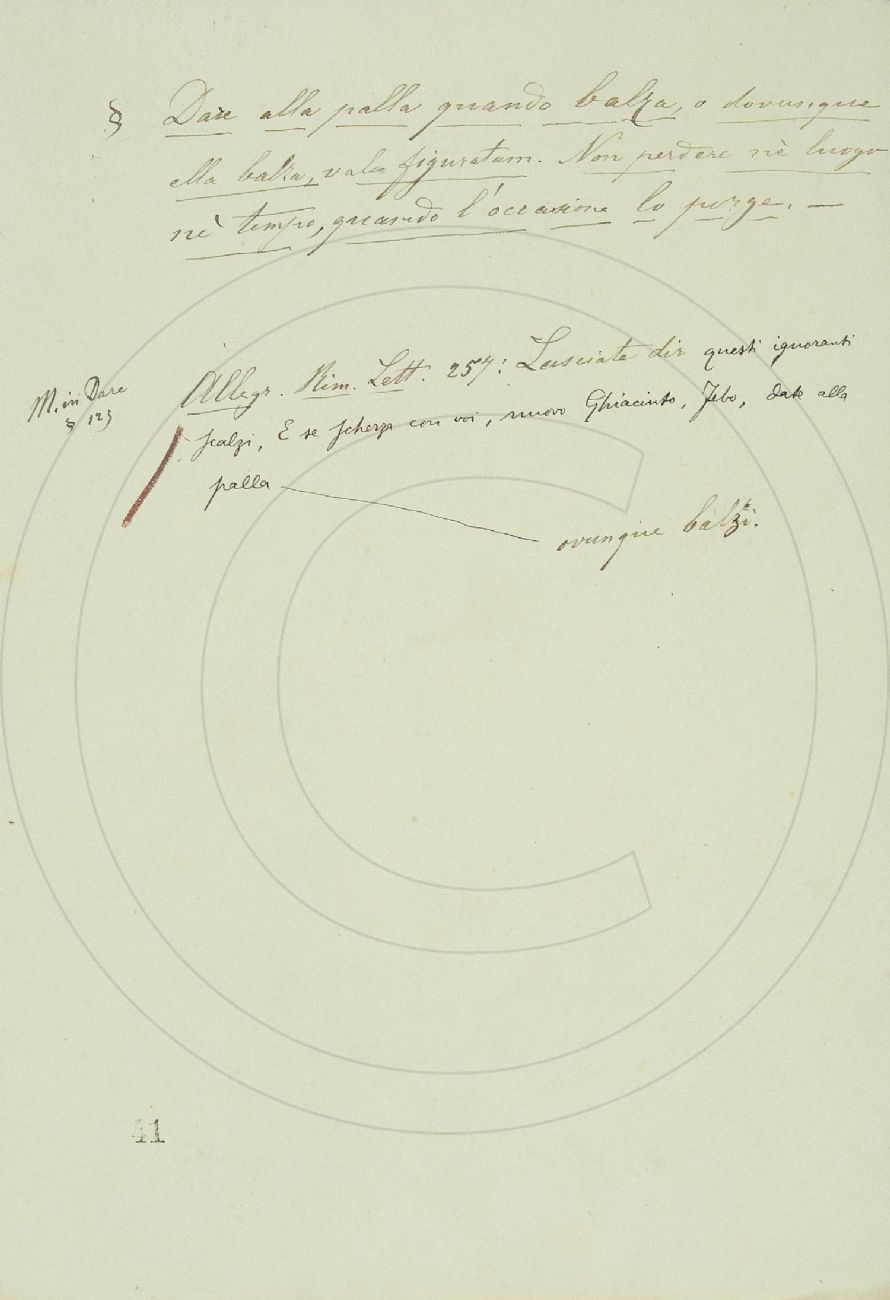 § Dare alla palla quando balza, o dovunque
ella balza, vale figuratam. Non perdere nè luogo
nè tempo, quando l'occasione lo porge. —
Allegr. Rim. Lett. 257: Lasciate dir questi ignoranti
M. in Dare
§ 123
scalzi, E se scherza con voi, nuovo Ghiacinto, Febo, date alla
palla
ovunque balzi.
41